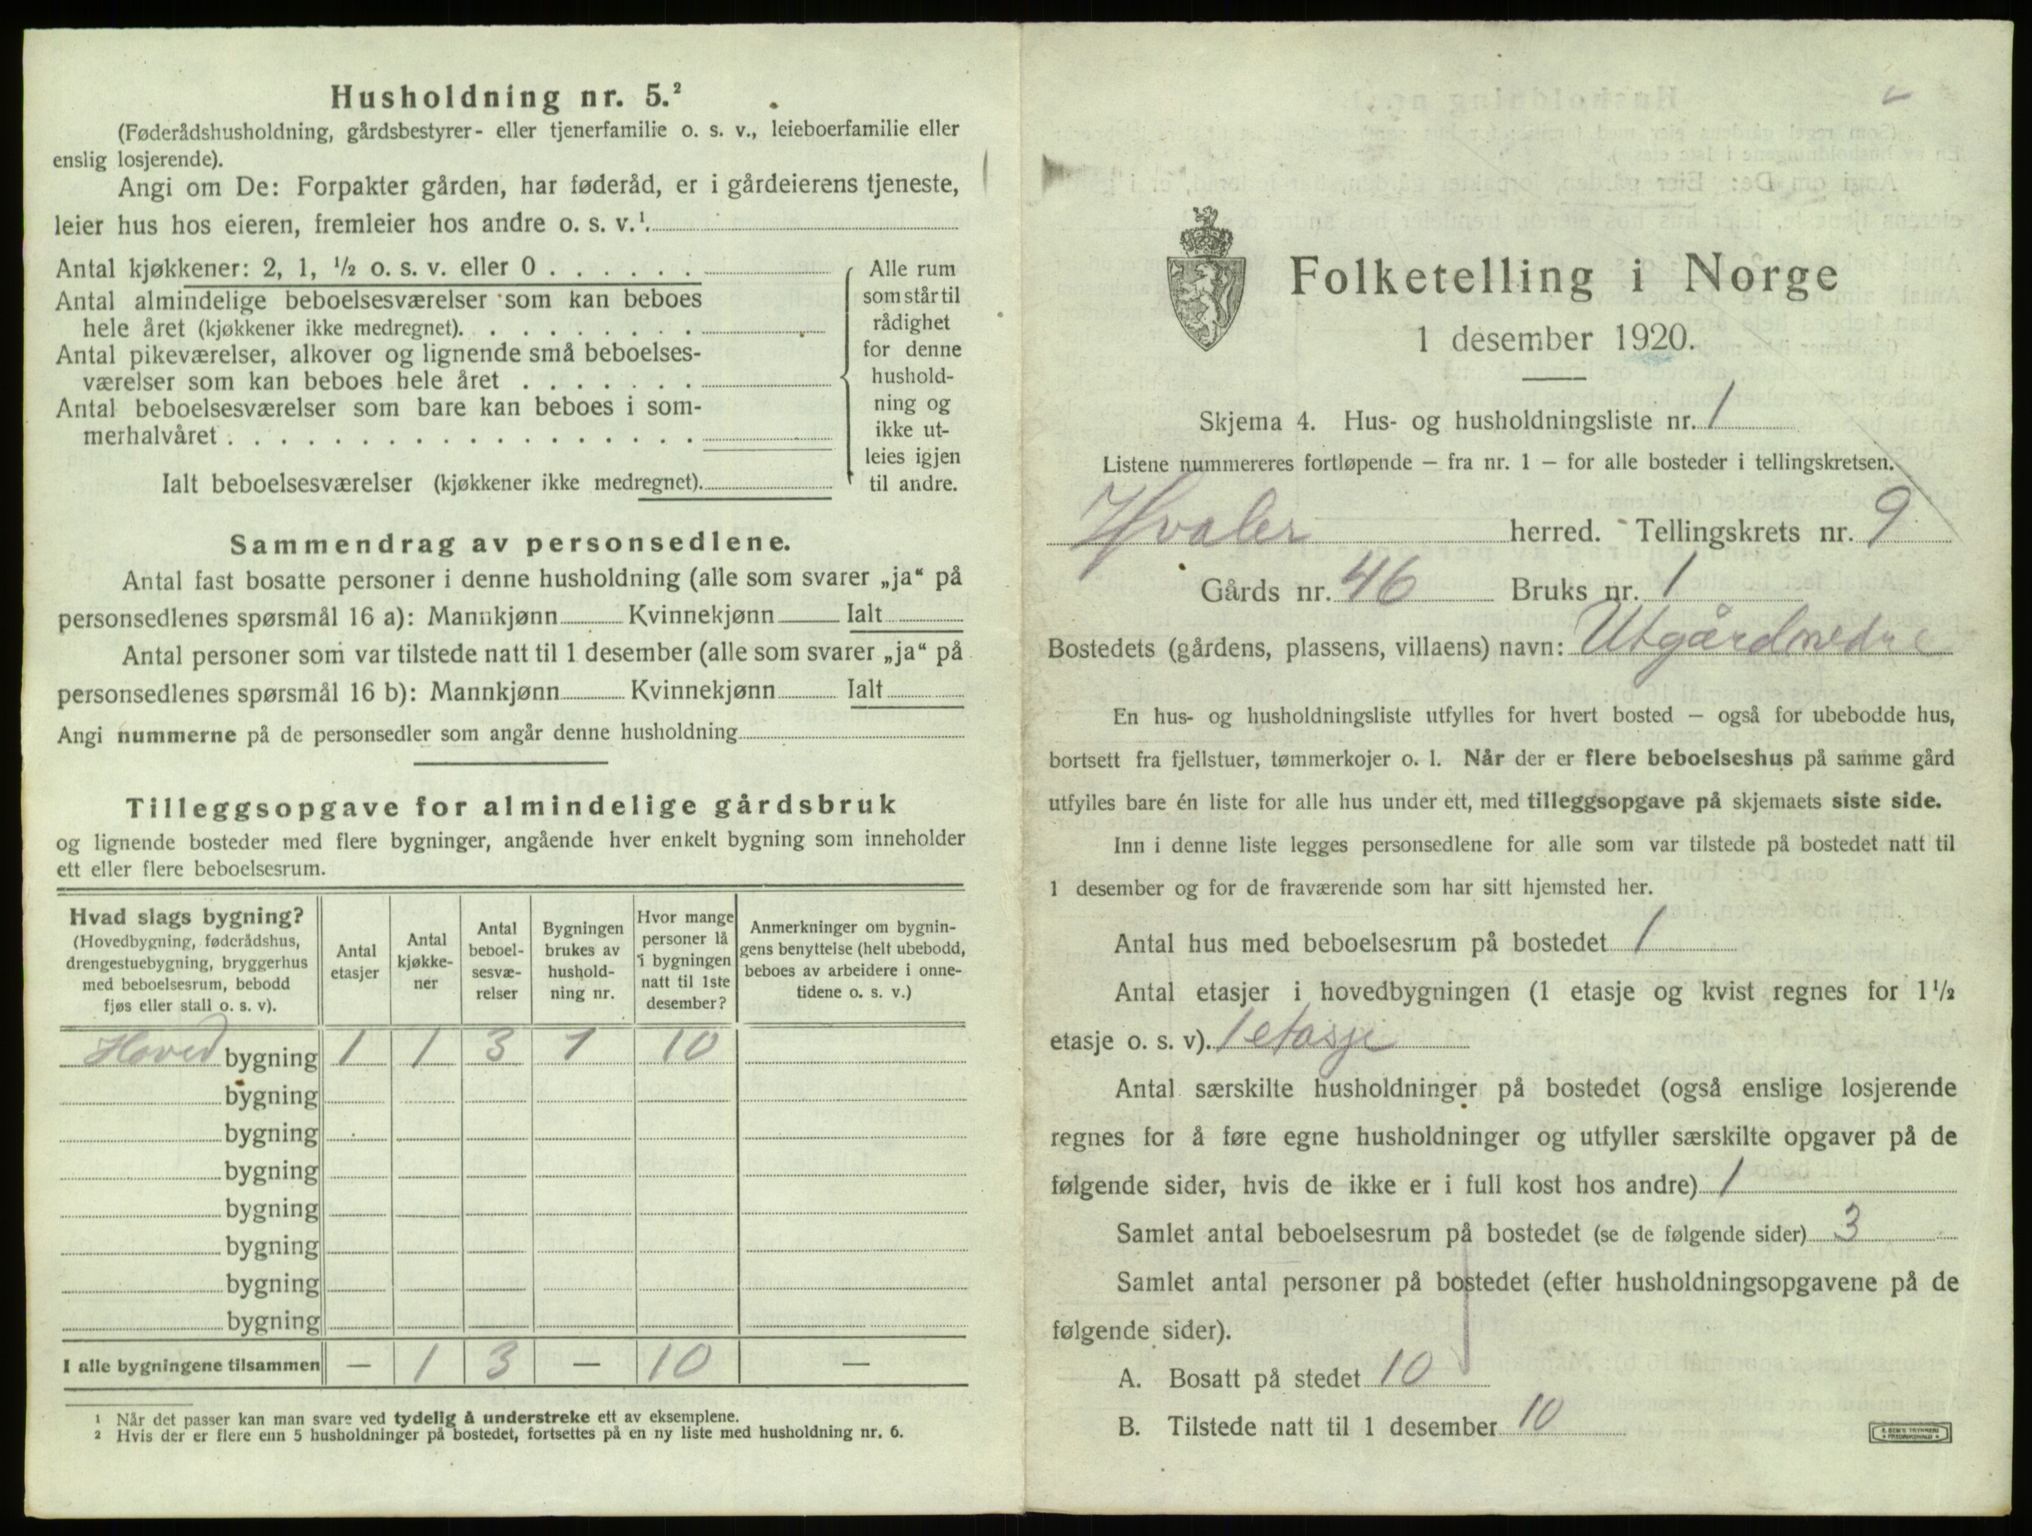 Husholdning nr. 5.²
(Føderådshusholdning, gårdsbestyrer- eller tjenerfamilie o. s. v., leieboerfamilie eller
enslig losjerende).
Angi om De: Forpakter gården, har føderåd, er i gårdeierens tjeneste,
leier hus hos eieren, fremleier hos andre o. s. v.¹.
Antal kjøkkener: 2, 1, ½ o. s. v. eller 0 . . . . . .
Antal almindelige beboelsesværelser som kan beboes
hele året (kjøkkener ikke medregnet). . . . . . . . .
Antal pikeværelser, alkover og lignende små beboelses-
værelser som kan beboes hele året . . . . . . .
Antal beboelsesværelser som bare kan beboes i som-
merhalvåret . . . . . . . . . . . . . . . . . .
Ialt beboelsesværelser (kjøkkener ikke medregnet).
Alle rum
som står til
rådighet
for denne
hushold-
ning og
ikke ut-
leies igjen
til andre.
Sammendrag av personsedlene.
Antal fast bosatte personer i denne husholdning (alle som svarer „ja“ på
personsedlenes spørsmål 16 a): Mannkjønn Kvinnekjønn Ialt
Antal personer som var tilstede natt til 1 desember (alle som svarer „ja“ på
personsedlenes spørsmål 16 b): Mannkjønn Kvinnekjønn Ialt
Angi nummerne på de personsedler som angår denne husholdning
Tilleggsopgave for almindelige gårdsbruk
og lignende bosteder med flere bygninger, angående hver enkelt bygning som inneholder
ett eller flere beboelsesrum.
Hvad slags bygning?
(Hovedbygning, føderådshus,
drengestuebygning, bryggerhus
med beboelsesrum, bebodd
fjøs eller stall o. s. v).
Antal
etasjer
Antal
kjøkke-
ner
Antal
beboel-
sesvæ-
relser
Bygningen
brukes av
hushold-
ning nr.
Hvor mange
personer lå
i bygningen
natt til 1ste
desember?
Anmerkninger om bygnin-
gens benyttelse (helt ubebodd,
beboes av arbeidere i onne-
tidene o. s. v.)
Hoved bygning 1 1 3 1 10
bygning
bygning
bygning
bygning
bygning
bygning
bygning
I alle bygningene tilsammen — 1 3 — 10 —
¹ Når det passer kan man svare ved tydelig å understreke ett av eksemplene.
² Hvis der er flere enn 5 husholdninger på bostedet, fortsettes på en ny liste med husholdning nr. 6.
Folketelling i Norge
1 desember 1920.
Skjema 4. Hus- og husholdningsliste nr. 1
Listene nummereres fortløpende — fra nr. 1 — for alle bosteder i tellingskretsen.
Hvaler herred. Tellingskrets nr. 9
Gårds nr. 46 Bruks nr. 1
Bostedets (gårdens, plassens, villaens) navn: Utgård nedre
En hus- og husholdningsliste utfylles for hvert bosted — også for ubebodde hus,
bortsett fra fjellstuer, tømmerkojer o. l. Når der er flere beboelseshus på samme gård
utfylles bare én liste for alle hus under ett, med tilleggsopgave på skjemaets siste side.
Inn i denne liste legges personsedlene for alle som var tilstede på bostedet natt til
1 desember og for de fraværende som har sitt hjemsted her.
Antal hus med beboelsesrum på bostedet 1
Antal etasjer i hovedbygningen (1 etasje og kvist regnes for 1½
etasje o. s. v). 1 etasje
Antal særskilte husholdninger på bostedet (også enslige losjerende
regnes for å føre egne husholdninger og utfyller særskilte opgaver på de
følgende sider, hvis de ikke er i full kost hos andre) 1
Samlet antal beboelsesrum på bostedet (se de følgende sider) 3
Samlet antal personer på bostedet (efter husholdningsopgavene på de
følgende sider).
A. Bosatt på stedet 10
B. Tilstede natt til 1 desember 10